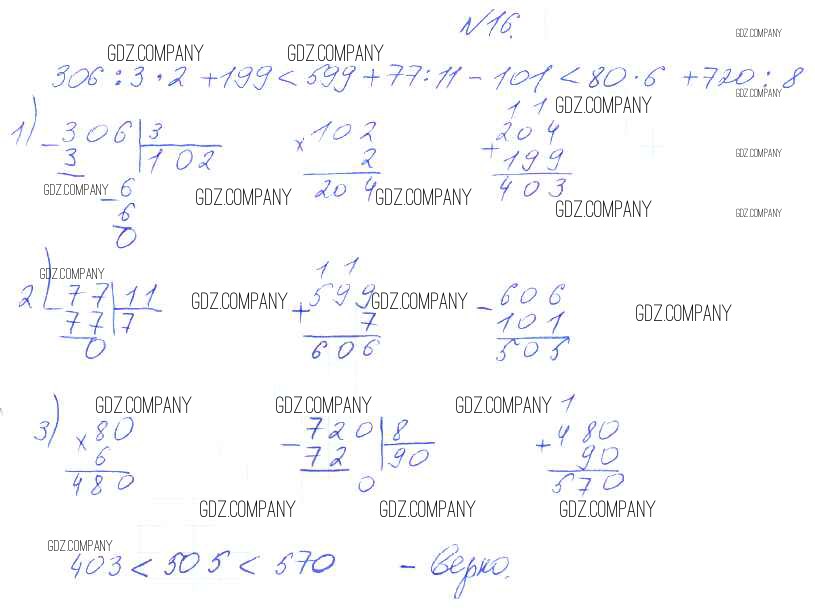 N16.
GDZ.COMPANY
GDZ.COMPANY GDZ.COMPANY
306 : 3 · 2 + 199 < 599 + 77 : 11 - 101 < 80 · 6 + 720 : 8
GDZ.COMPANY
1 1 GDZ.COMPANY
1) - 306 | 3 × 102 204
3 | 102 2 + 199
GDZ.COMPANY
204 403
GDZ.COMPANY - 6 GDZ.COMPANY GDZ.COMPANY
6 GDZ.COMPANY GDZ.COMPANY
0
GDZ.COMPANY 1 1
2) - 77 | 11 + 599 - 606
GDZ.COMPANY GDZ.COMPANY
77 | 7 7 101 GDZ.COMPANY
0 606 505
GDZ.COMPANY GDZ.COMPANY GDZ.COMPANY 1
3) × 80 - 720 | 8 + 480
6 72 | 90 90
480 0 570
GDZ.COMPANY GDZ.COMPANY GDZ.COMPANY
GDZ.COMPANY
403 < 505 < 570 - верно.